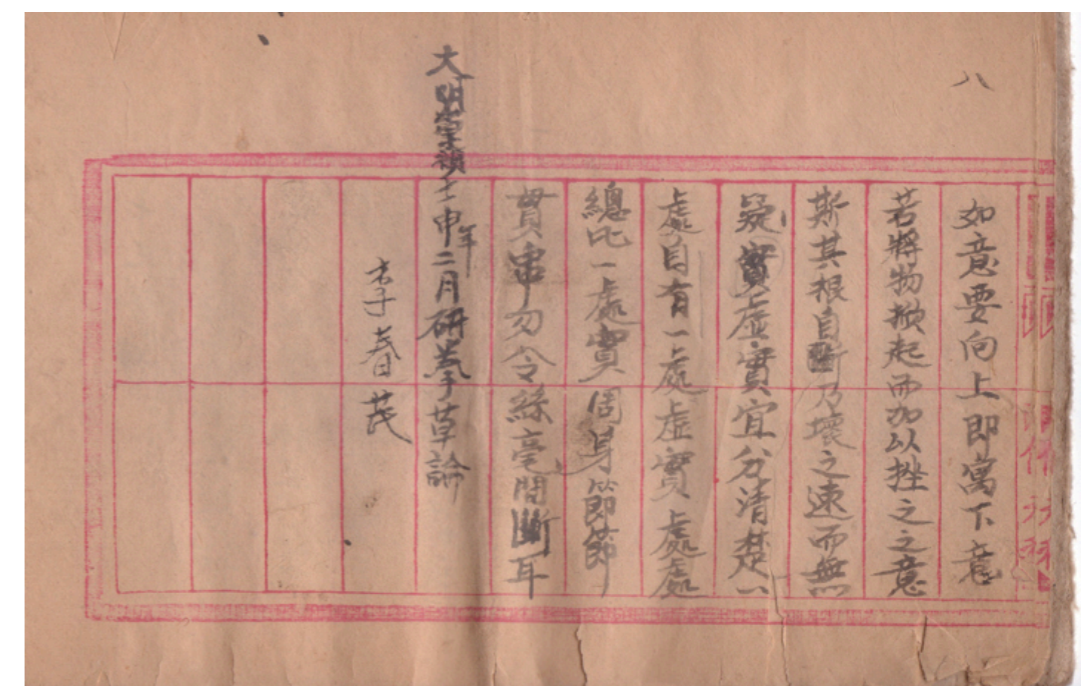 八
如意要向上即寓下意
若將物掀起而加以挫之之意
斯其根自斷乃壞之速而無
疑實虛實宜分清楚一
處自有一處虛實處處
總此一處實周身節節
貫串勿令絲毫間斷耳
大明崇禎壬申年二月研荠草論
李春茂